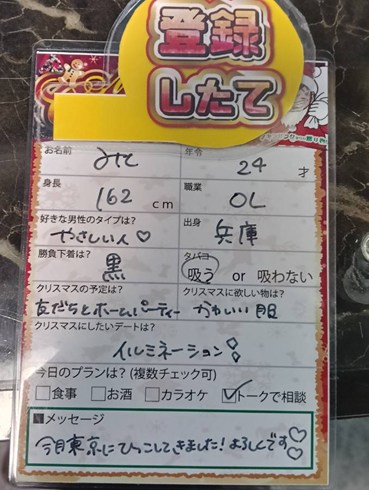 登録
したて
お名前 みく 年令 24 才
身長 162 cm 職業 OL
好きな男性のタイプは? 出身
やさしい人♡ 兵庫
勝負下着は? タバコ
黒 吸う or 吸わない
クリスマスの予定は? クリスマスに欲しい物は?
友だちとホームパーティー かわいい服
クリスマスにしたいデートは?
イルミネーション
今日のプランは?(複数チェック可)
□食事 □お酒 □カラオケ ☑トークで相談
メッセージ
今月東京にひっこしてきました!よろしくです♡♡